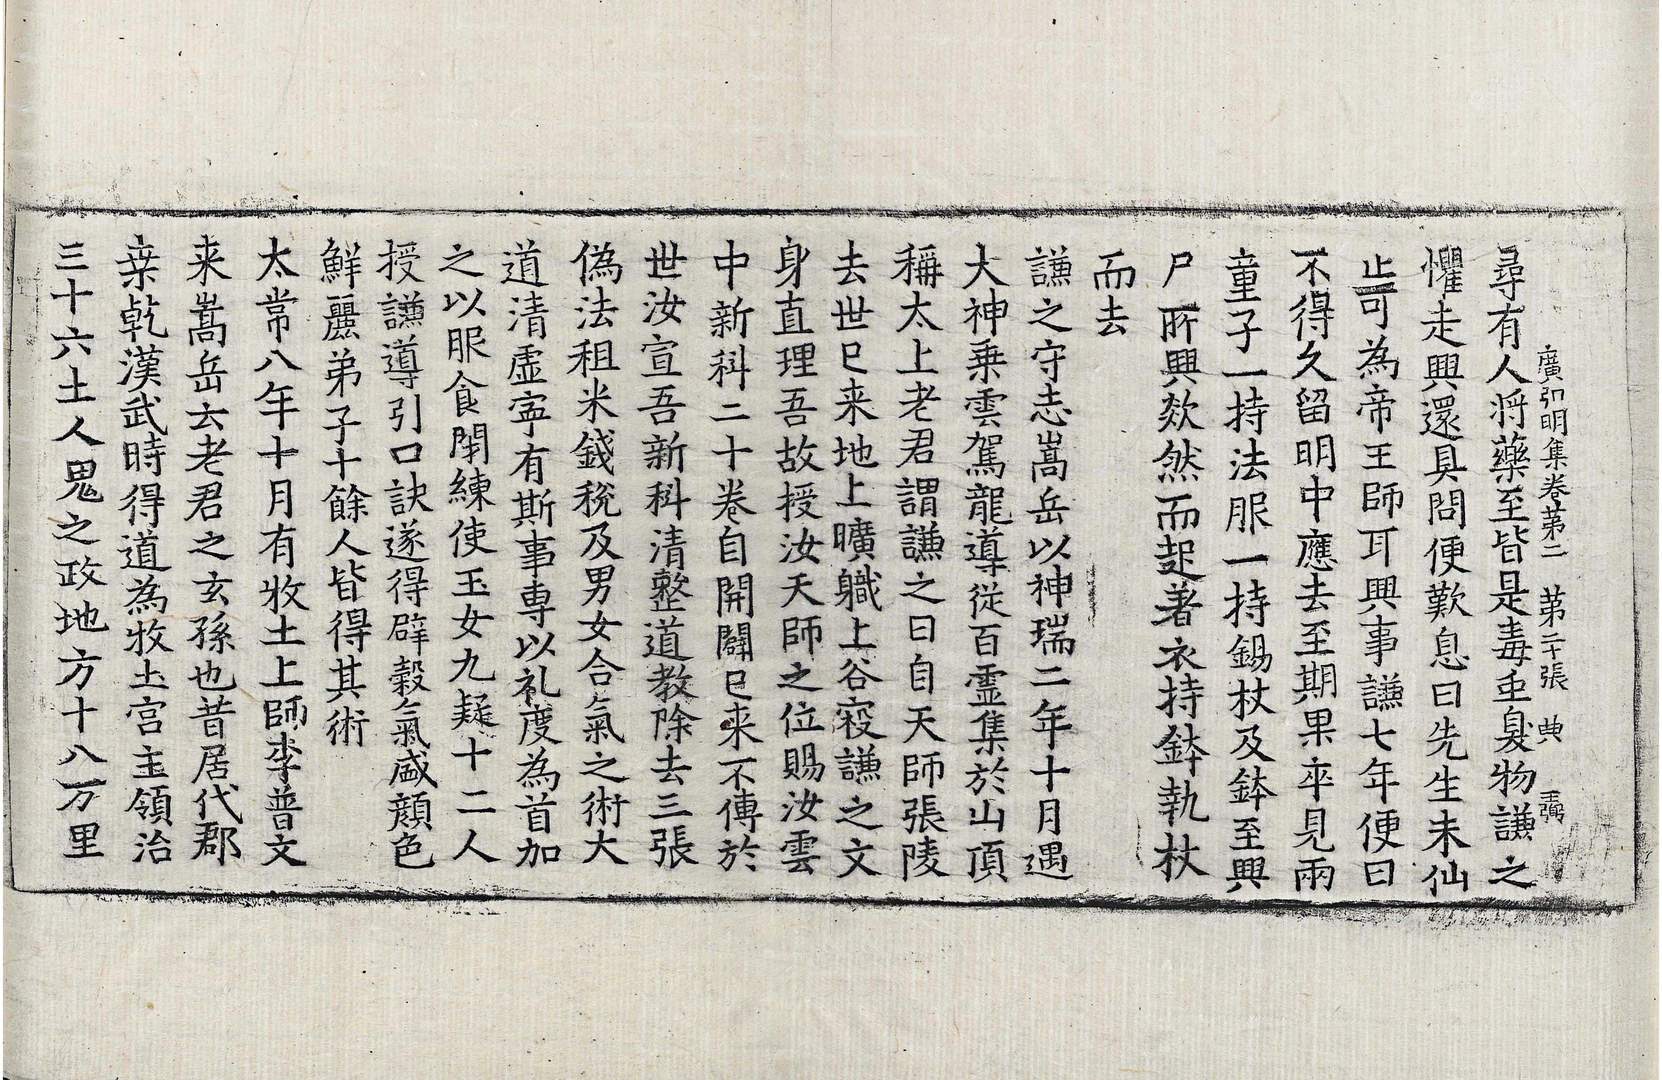 廣弘明集卷第二 第二十張 典
尋有人將藥至皆是毒虫臭物謙之
懼走興還具問便歎息曰先生未仙
止可為帝王師耳興事謙七年便曰
不得久留明中應去至期果卒見兩
童子一持法服一持錫杖及鉢至興
尸所興欻然而起著衣持鉢執杖
而去
謙之守志嵩岳以神瑞二年十月遇
大神乗雲駕龍導從百靈集於山頂
稱太上老君謂謙之曰自天師張陵
去世已来地上曠軄上谷寇謙之文
身直理吾故授汝天師之位賜汝雲
中新科二十卷自開闢已来不傳於
世汝宣吾新科清整道教除去三張
偽法租米錢稅及男女合氣之術大
道清虛寍有斯事専以礼度為首加
之以服食閇練使玉女九疑十二人
授謙導引口訣遂得辟穀氣盛顔色
鮮麗弟子十餘人皆得其術
太常八年十月有牧土上師李普文
来嵩岳云老君之玄孫也昔居代郡
桒乹漢武時得道為牧土宮主領治
三十六土人鬼之政地方十八万里